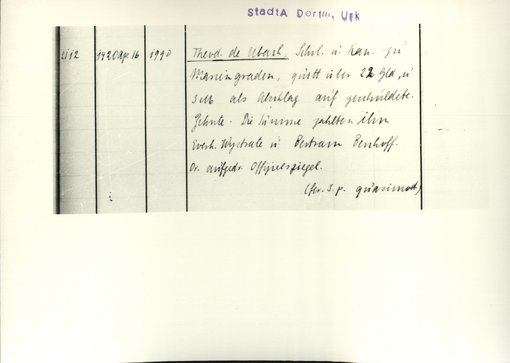 StadtA Dortm. Urk
2112 1420 Apr. 16 1990 Theod. de Ubach, Schol. u. Kan. zu
Mariengraden, quitt über 22 Gld. u
als Abschlag auf geschuldete
Zehnte. Die Summe zahlten ihm
Everh. Wystrate u. Bertram Benhoff.
Or. aufgedr. Offizielspiegel.
(fer. 5. p. quasimod.)